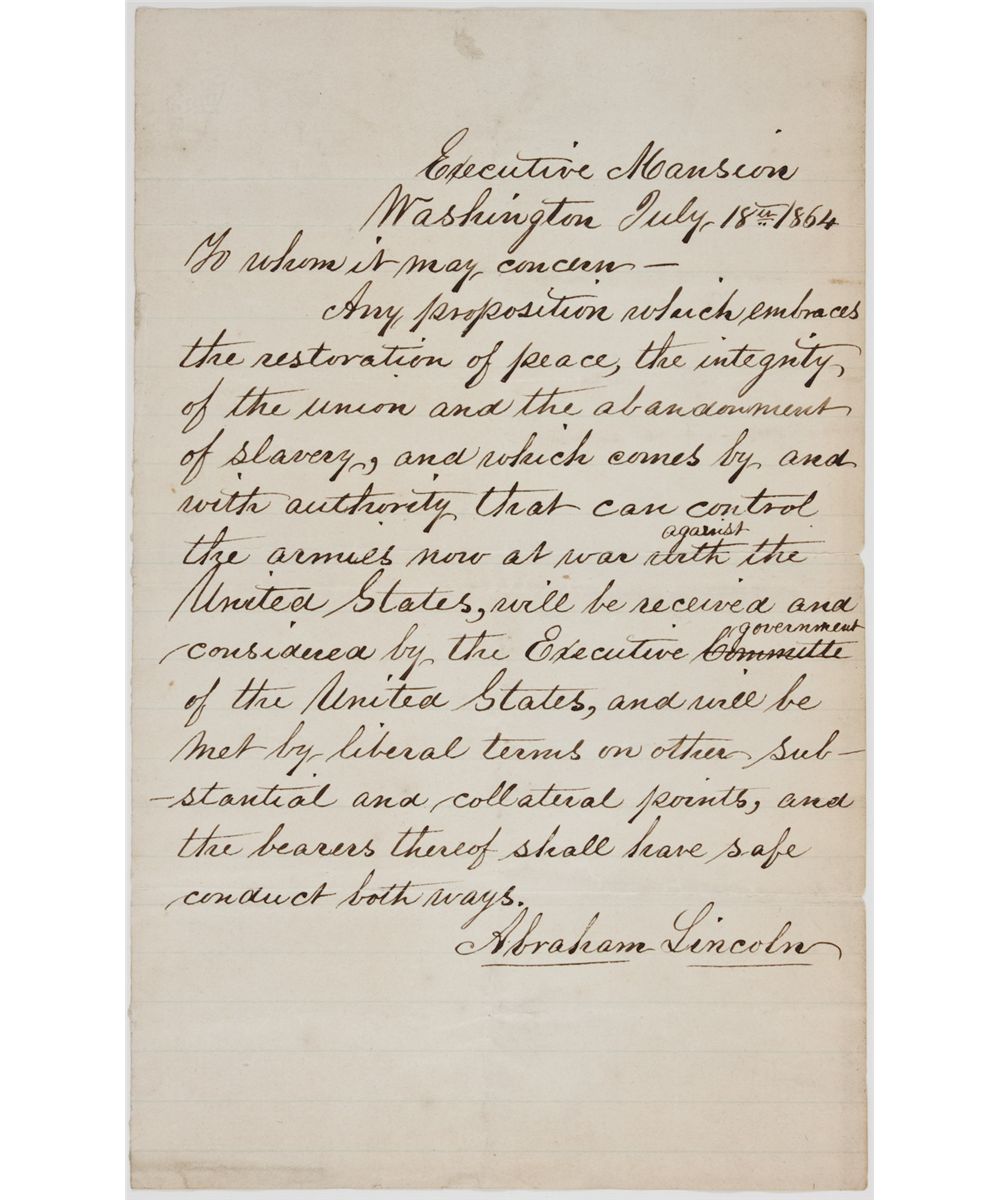 Executive Mansion
Washington July 18th 1864
To whom it may concern —
Any proposition which embraces
the restoration of peace, the integrity
of the union and the abandonment
of slavery, and which comes by and
with authority that can control
against
the armies now at war with the
United States, will be received and
government
considered by the Executive Committe
of the United States, and will be
met by liberal terms on other sub-
-stantial and collateral points, and
the bearers thereof shall have safe
conduct both ways.
Abraham Lincoln